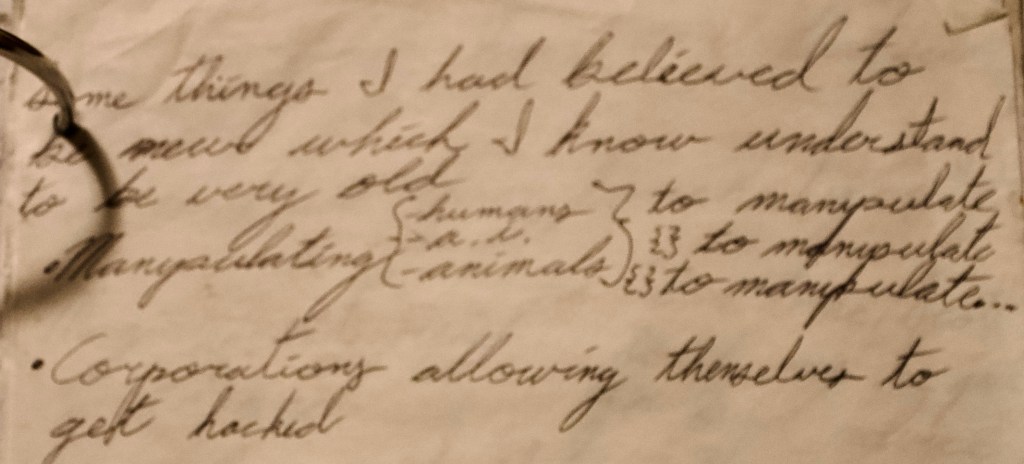 some things I had believed to
be new which I know understand
to be very old
• Manypulating {-humans -a.i. -animals} to manypulate
{} to manypulate
{} to manypulate...
• Corporations allowing themselves to
get hacked